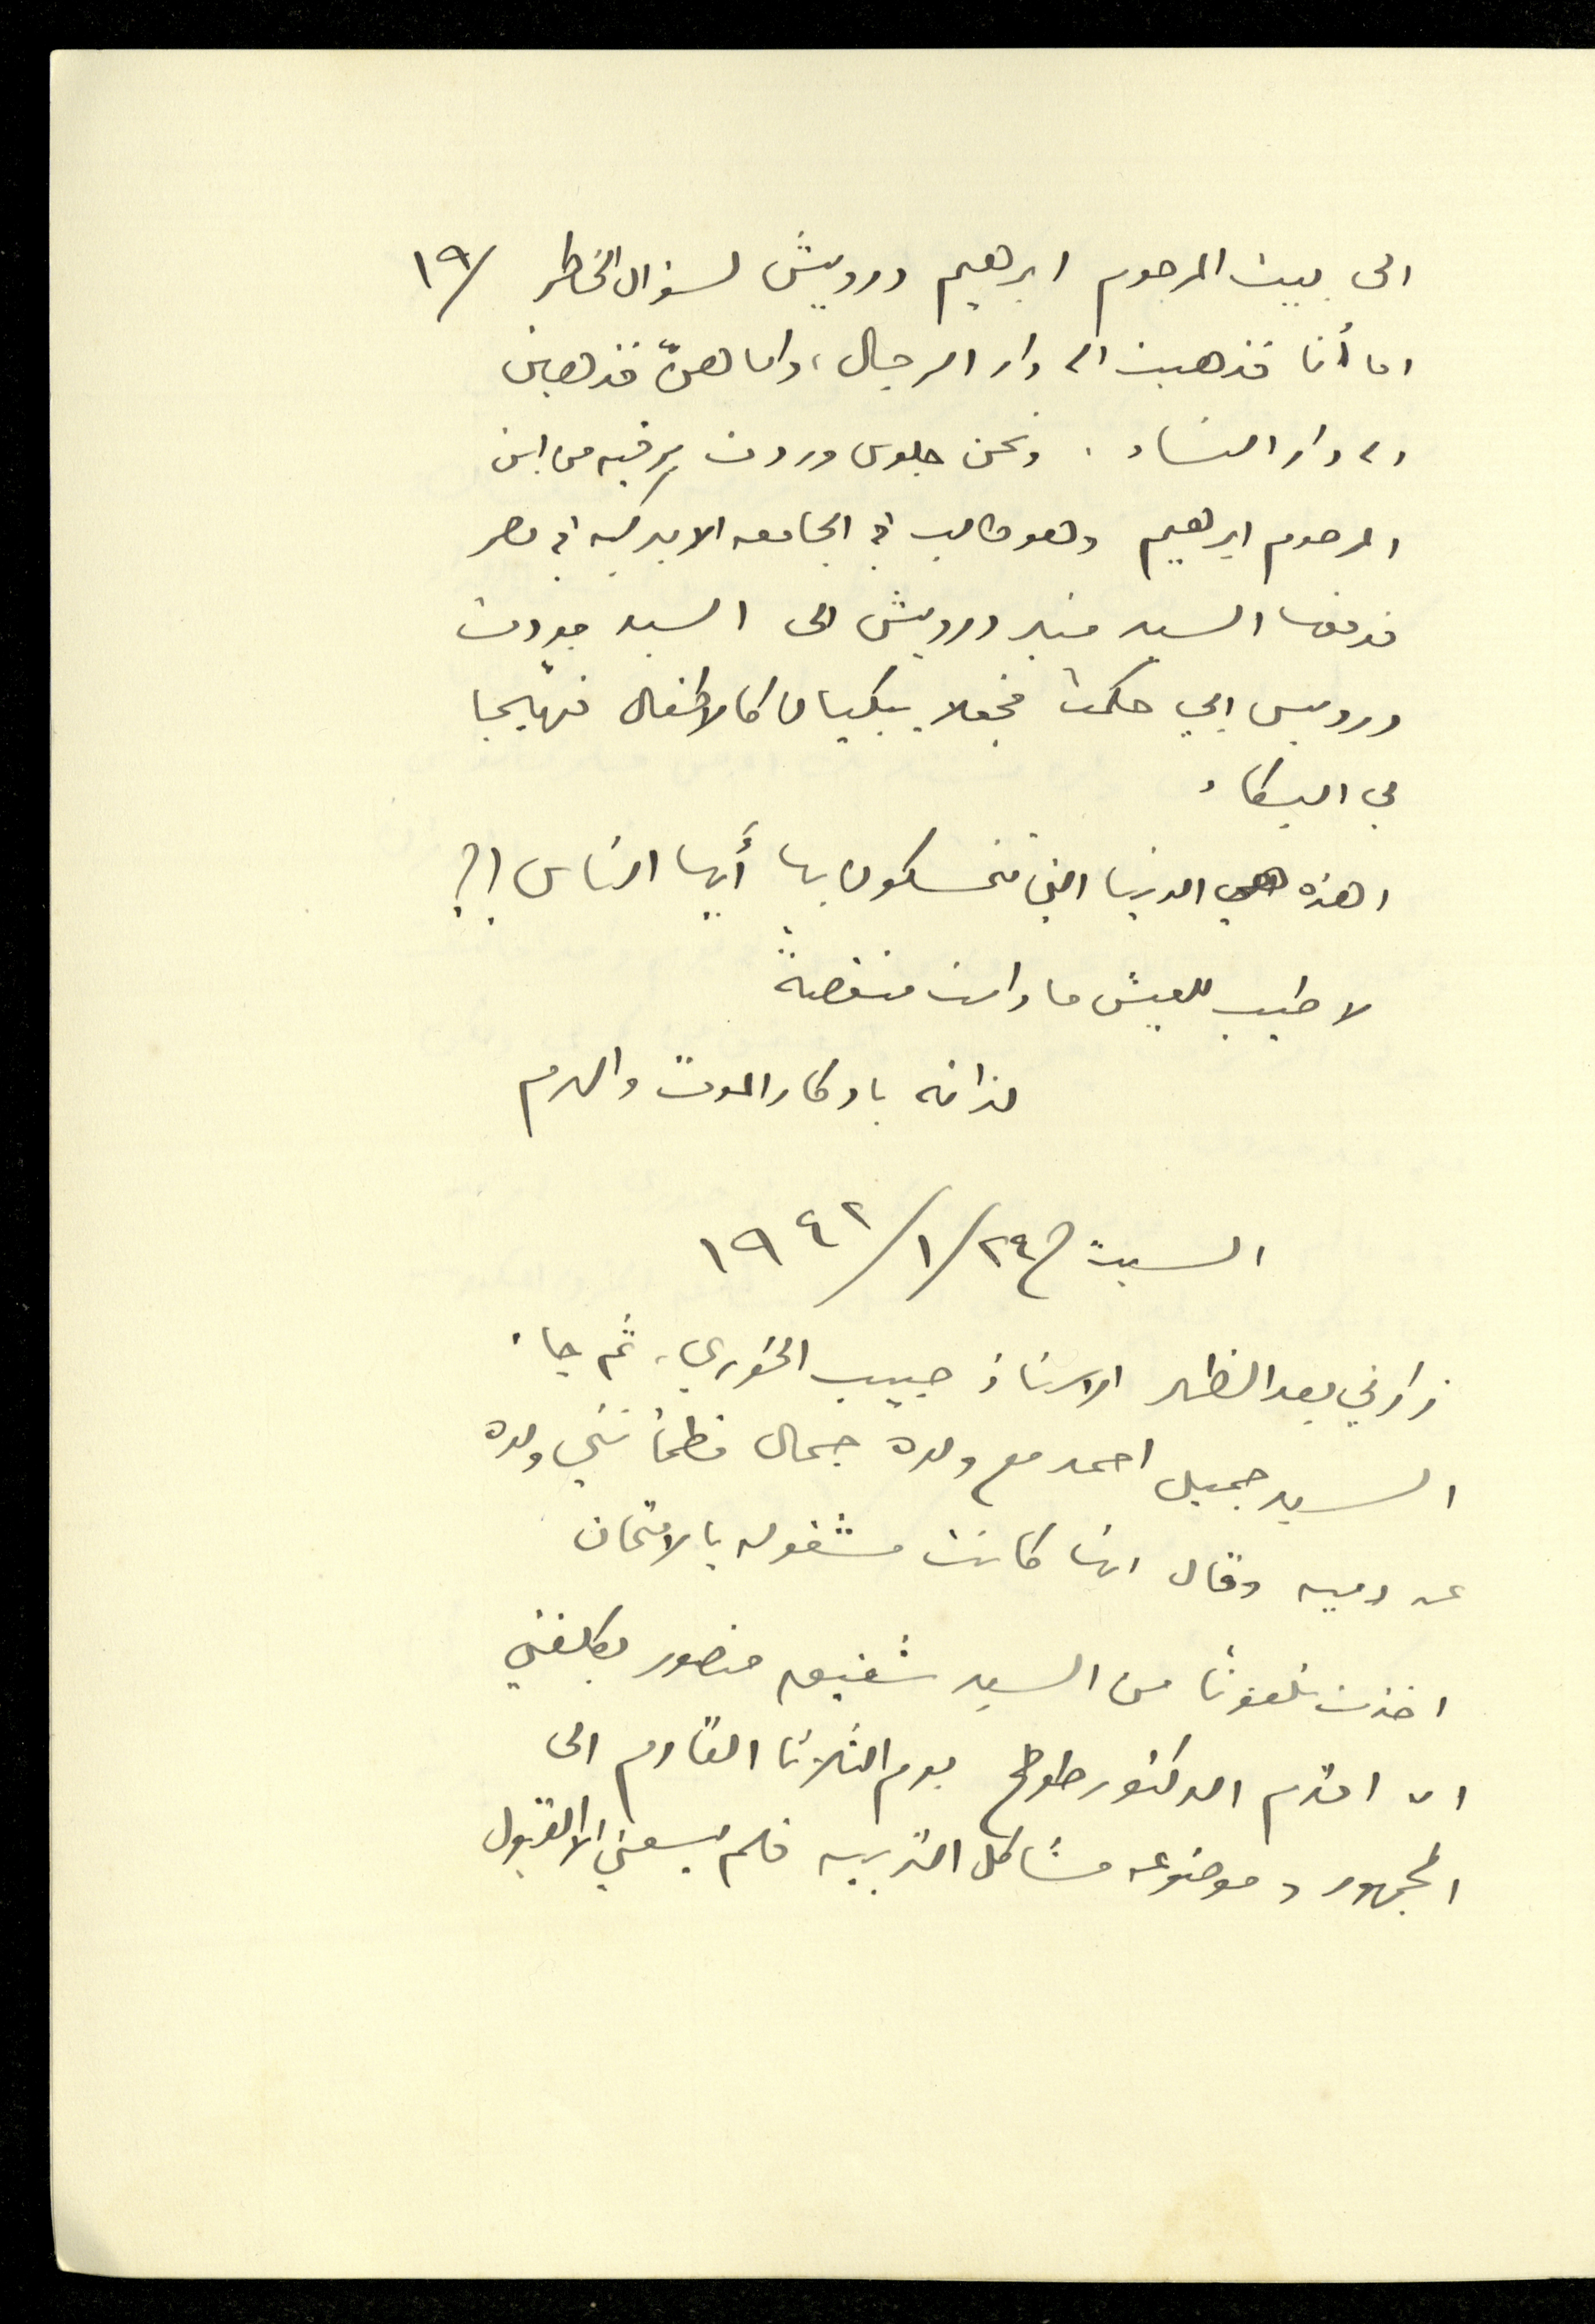 الى بيت المرحوم ابرهيم درويش لسؤال الخاطر /١٩
اما أنا فذهبت الى دار الرجال، واما هنّ فذهبن
الى دار النساء. ونحن جلوس وردت برقيه من ابن
المرحوم ابرهيم وهو طالب في الجامعه الاميركيه في مصر
فدفعها السيد منير درويش الى السيد جودت
درويش ابي حكمت فجعلا يبكيان كالاطفال فهيّجا
بي البكاء
اهذه هي الدنيا التي تتمسكون بها أيها الناس !؟
لا طيب للعيش ما دامت منغصةً
لذاته بادكار الموت والهرم
السبت في ٢٤/١/١٩٤٢
زارني بعد الظهر الاستاذ حبيب الخوري، ثم جاء
السيد جميل احمد مع ولده جمال فطمأنني ولده
عن دميه وقال انها كانت مشغوله بالامتحان
اخذت تلفونًا من السيد شفيق منصور يكلفني
ان اقدم الدكتور طوطح يوم الثلاثا القادم الى
الجمهور وموضوعه مشاكل التربيه فلم يسعني الا القبول